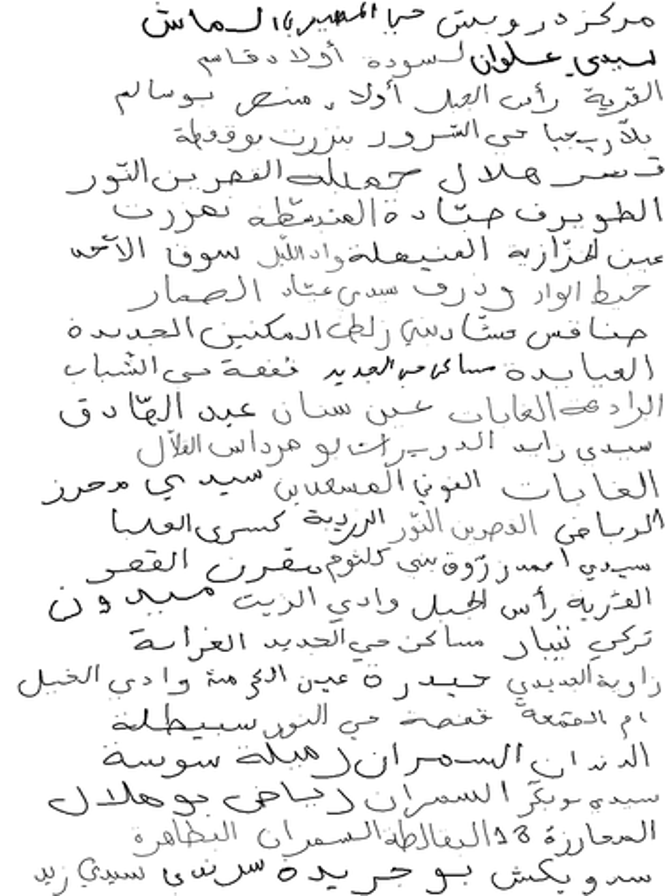 مركز درويش حي المصير الماش
سيدي علوان لسودة أولاد قاسم
القرية رأس الجبل أولاد منصر بوسالم
بلاّريجيا حي السرور بنزرت بوقوفطة
قصر هلال جميلة القصرين النّور
الطويرف حمّادة القندسطة بنزرت
عين الخزازية المنيهلة واد اللّيل سوق الأحد
خيط الواد وذرف سيدي عبّاد الصمار
صفاقس زلطن المكنين الجديدة
العبايدة مساكن حي الجديد قفصة حي الشباب
الغابات عين سنان عبد الصّادق
سيدي زايد الدريرات بو مرداس القلاّل
الغابات الفوني المسعدين سيدي محرز
الرياض القصرين النّور الرديّة كسرى العليا
سيدي امحمد زرّوق بني كلثوم مقرن القصر
القرية رأس الجبل وادي الزيت ميدون
تركي نيبار مساكن حي الجديد الغرابة
زاوية الجديدي حيدرة عين الكرمة وادي الخيل
ام القمعة قفصة حي النور سبيطلة
الدندان السمران رميلة سوسة
سيدي بوبكر السمران رياض بوهلال
المعارزة 18 البقالطة السمران الظاهرة
سدويكش بوجريدة سرندي سيدي زيد